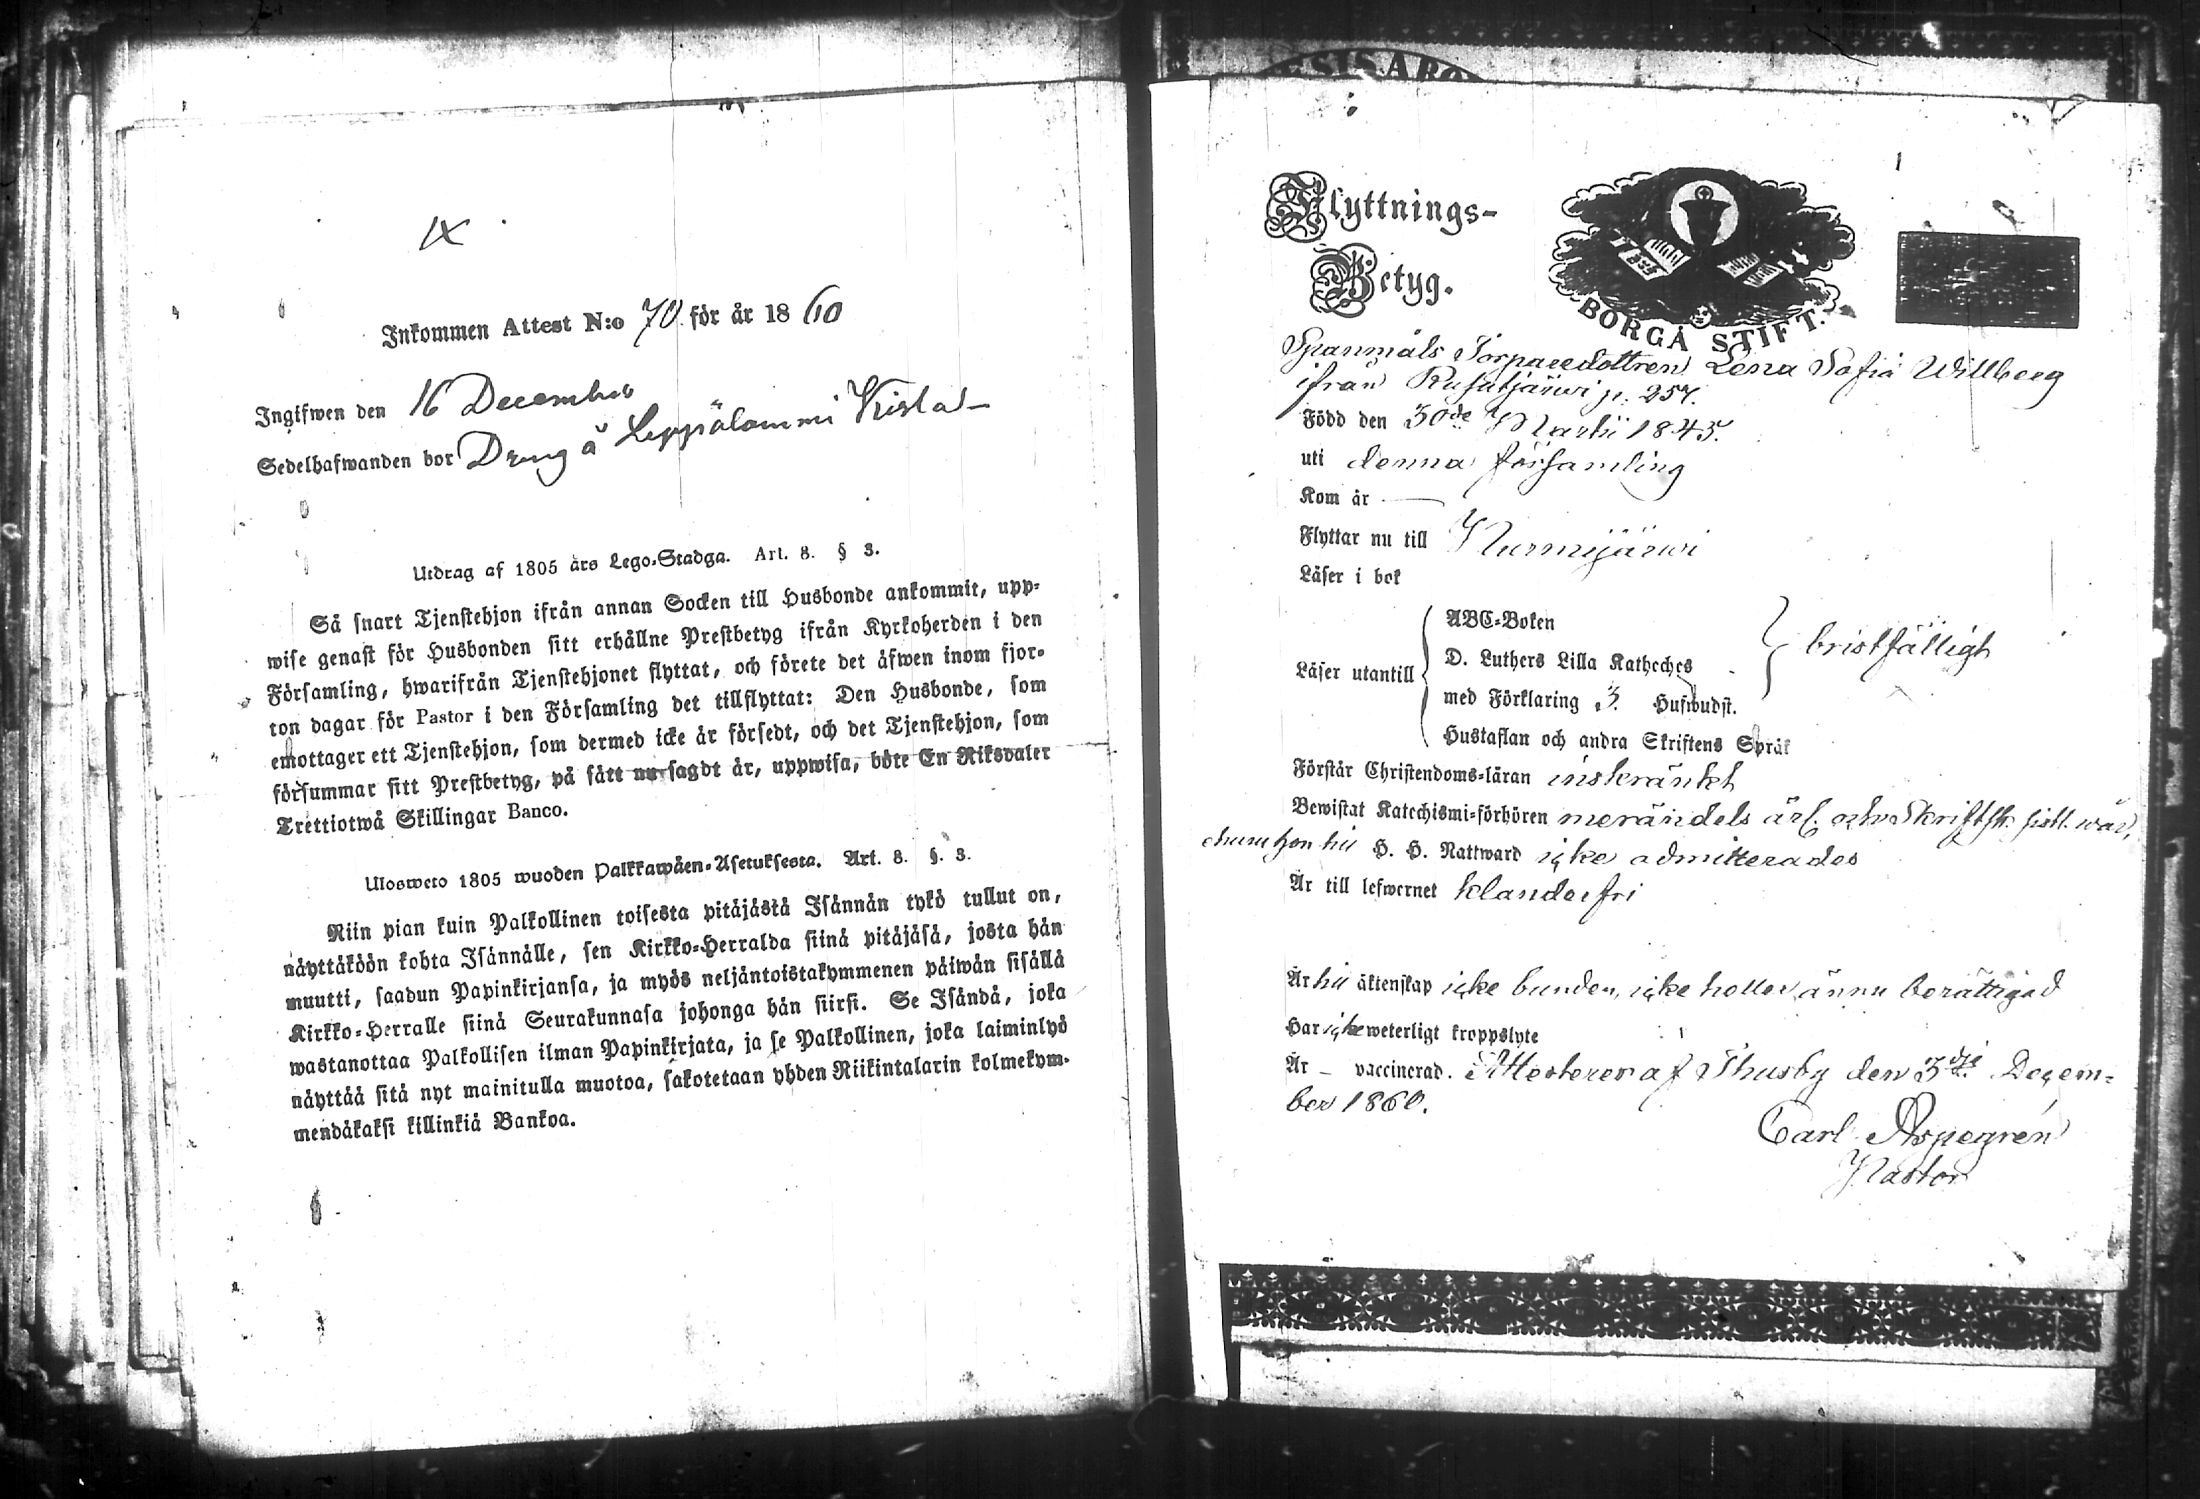 IX
Inkommen Attest N:o 70 för år 1860
Ingifwen den 16 December
Sedelhafwanden bor Dreng å Leppälammi
Utdrag af 1805 års Lego-Stadga. Art. 8. § 3.
Så snart Tjenstehjon ifrån annan Socken till Husbonde ankommit, upp-
wise genast för Husbonden sitt erhållne Prestbetyg ifrån Kyrkoherden i den
Församling, hwarifrån Tjenstehjonet flyttat, och förete det äfwen inom fjor-
ton dagar för Pastor i den Församling det tillflyttat: Den Husbonde, som
emottager ett Tjenstehjon, som dermed icke är försedt, och det Tjenstehjon, som
försummar sitt Prestbetyg, på sätt nu sagdt är, uppwisa, böte En Riksdaler
Trettiotwå Skillingar Banco.
Ulosweto 1805 wuoden Palkkawäen-Asetuksesta. Art. 8. §. 3.
Niin pian kuin Palkollinen toisesta pitäjästä Isännän tykö tullut on,
näyttäköön kohta Isännälle, sen Kirkko-Herralda siinä pitäjäsä, josta hän
muutti, saadun Papinkirjansa, ja myös neljäntoistakymmenen päiwän sisällä
Kirkko-Herralle siinä Seurakunnasa johonga hän siirsi. Se Isändä, joka
wastanottaa Palkollisen ilman Papinkirjata, ja se Palkollinen, joka laiminlyö
näyttää sitä nyt mainitulla muotoa, sakotetaan yhden Riikintalarin kolmekym-
mendäkaksi killinkiä Bankoa.
Flyttnings-
Betyg.
BORGÅ STIFT.
Spanmåls Torparedottren Lena Sofia Willberg
ifrån Rusutjärwi p. 257.
Född den 30de Martii 1843.
uti denna församling
Kom år —
Flyttar nu till Nurmijärwi
Läser i bok
Läser utantill
ABC-Boken
D. Luthers Lilla Katheches
med Förklaring 3. Husbudst.
Hustaflan och andra Skriftens Språk
bristfälligt
Förstår Christendoms-läran inskränkt
Bewistat Katechismi-förhören merändels årl. och Skriftsk. sistl. wår,
hon till H. H. Nattward icke admitterades
Är till lefwernet klanderfri
Är till äktenskap icke bunden, icke heller ännu berättigad
Har icke weterligt kroppslyte
Är – vaccinerad. Attesterer af Thusby den 3dje Decem-
ber 1860.
Carl Aspegrén
Pastor